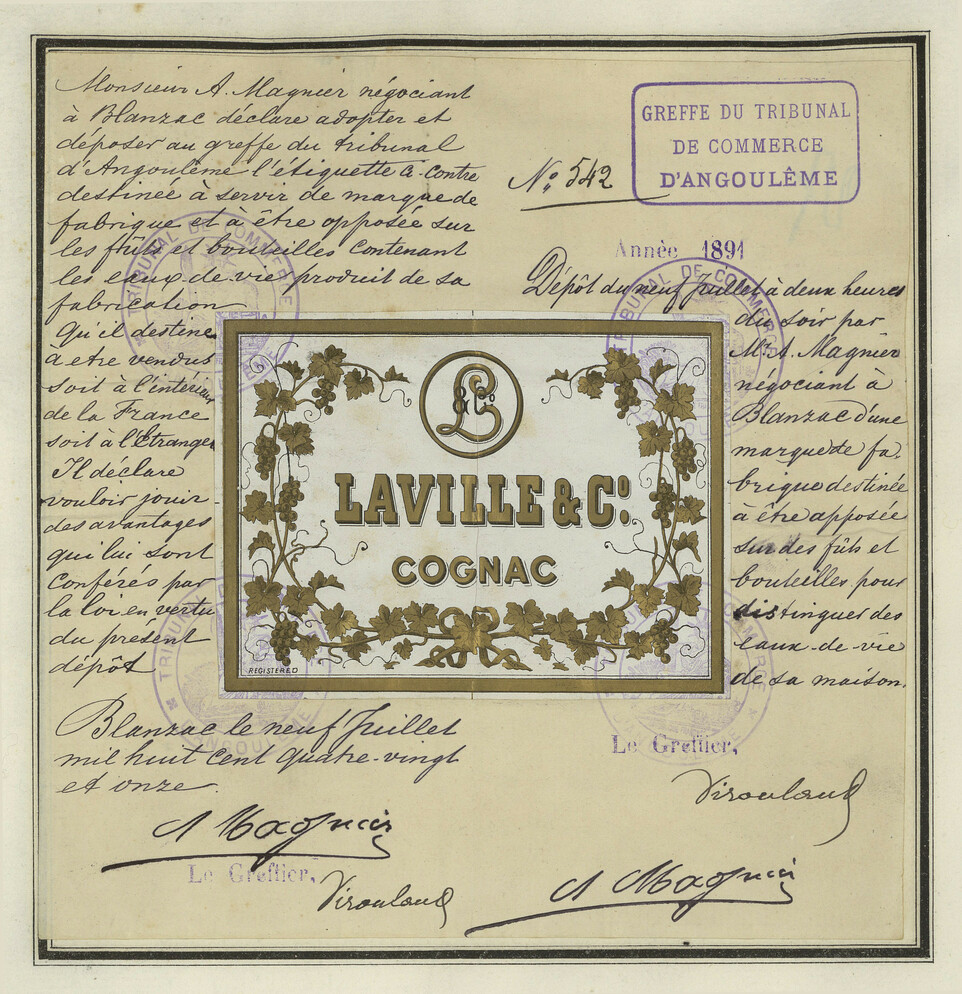 Monsieur A. Magnier négociant
à Blanzac déclare adopter et
déposer au greffe du tribunal
d'Angoulême l'étiquette ci-contre
destinée à servir de marque de
fabrique et à être opposée sur
les fûts et bouteilles contenant
les eaux-de-vie produit de sa
fabrication
qu'il destine
à etre vendus
soit à l'intérieur
de la France
soit à l'Etranger
Il déclare
vouloir jouir
des avantages
qui lui sont
conférés par
la loi en vertu
du présent
dépôt
Blanzac le neuf Juillet
mil huit cent quatre-vingt
et onze
A Magnier
Le Greffier,
Virouland
GREFFE DU TRIBUNAL
DE COMMERCE
D'ANGOULÊME
No 542
Année 1891
Dépôt du neuf Juillet à deux heures
du soir par
Mr. A. Magnier
négociant à
Blanzac d'une
marque de fa-
brique destinée
à être apposée
sur des fûts et
bouteilles pour
distinguer des
eaux-de-vie
de sa maison.
Le Greffier,
Virouland
A Magnier
L & Co
LAVILLE & Co.
COGNAC
REGISTERED
TRIBUNAL DE COMMERCE
TRIBUNAL DE COMMERCE